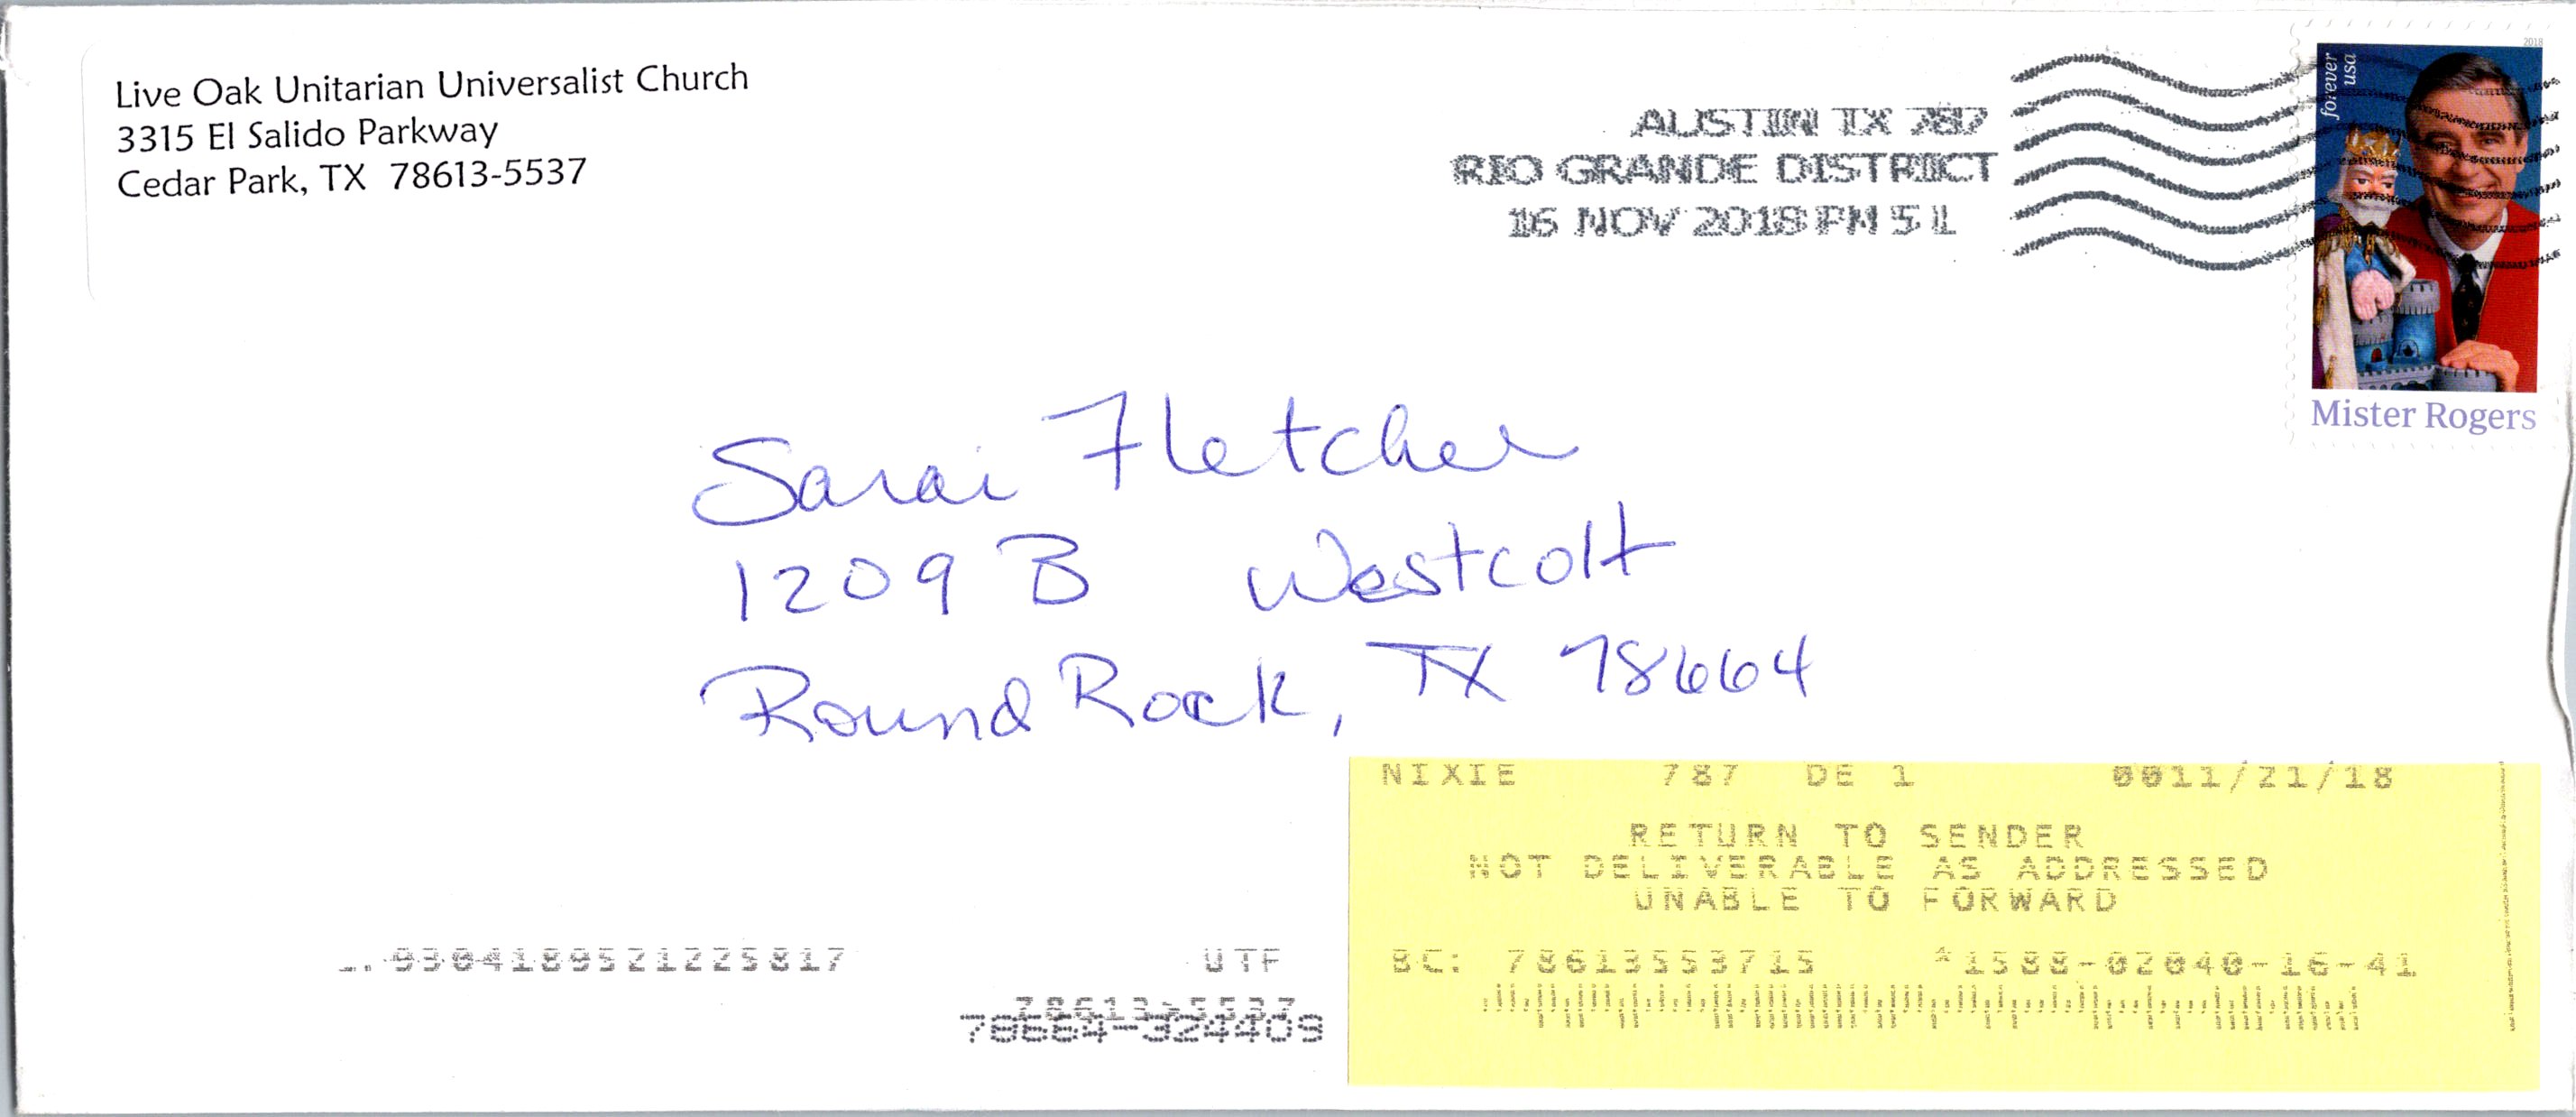 Live Oak Unitarian Universalist Church
3315 El Salido Parkway
Cedar Park, TX 78613-5537
AUSTIN TX 787
RIO GRANDE DISTRICT
16 NOV 2018 PM 5 L
2018
forever
usa
Mister Rogers
Sarai Fletcher
1209 B Westcott
Round Rock, TX 78664
NIXIE 787 DE 1 0011/21/18
RETURN TO SENDER
NOT DELIVERABLE AS ADDRESSED
UNABLE TO FORWARD
BC: 78613553715 *1588-02040-16-41
9304189521225817 UTF
78613>5537
78664-324409